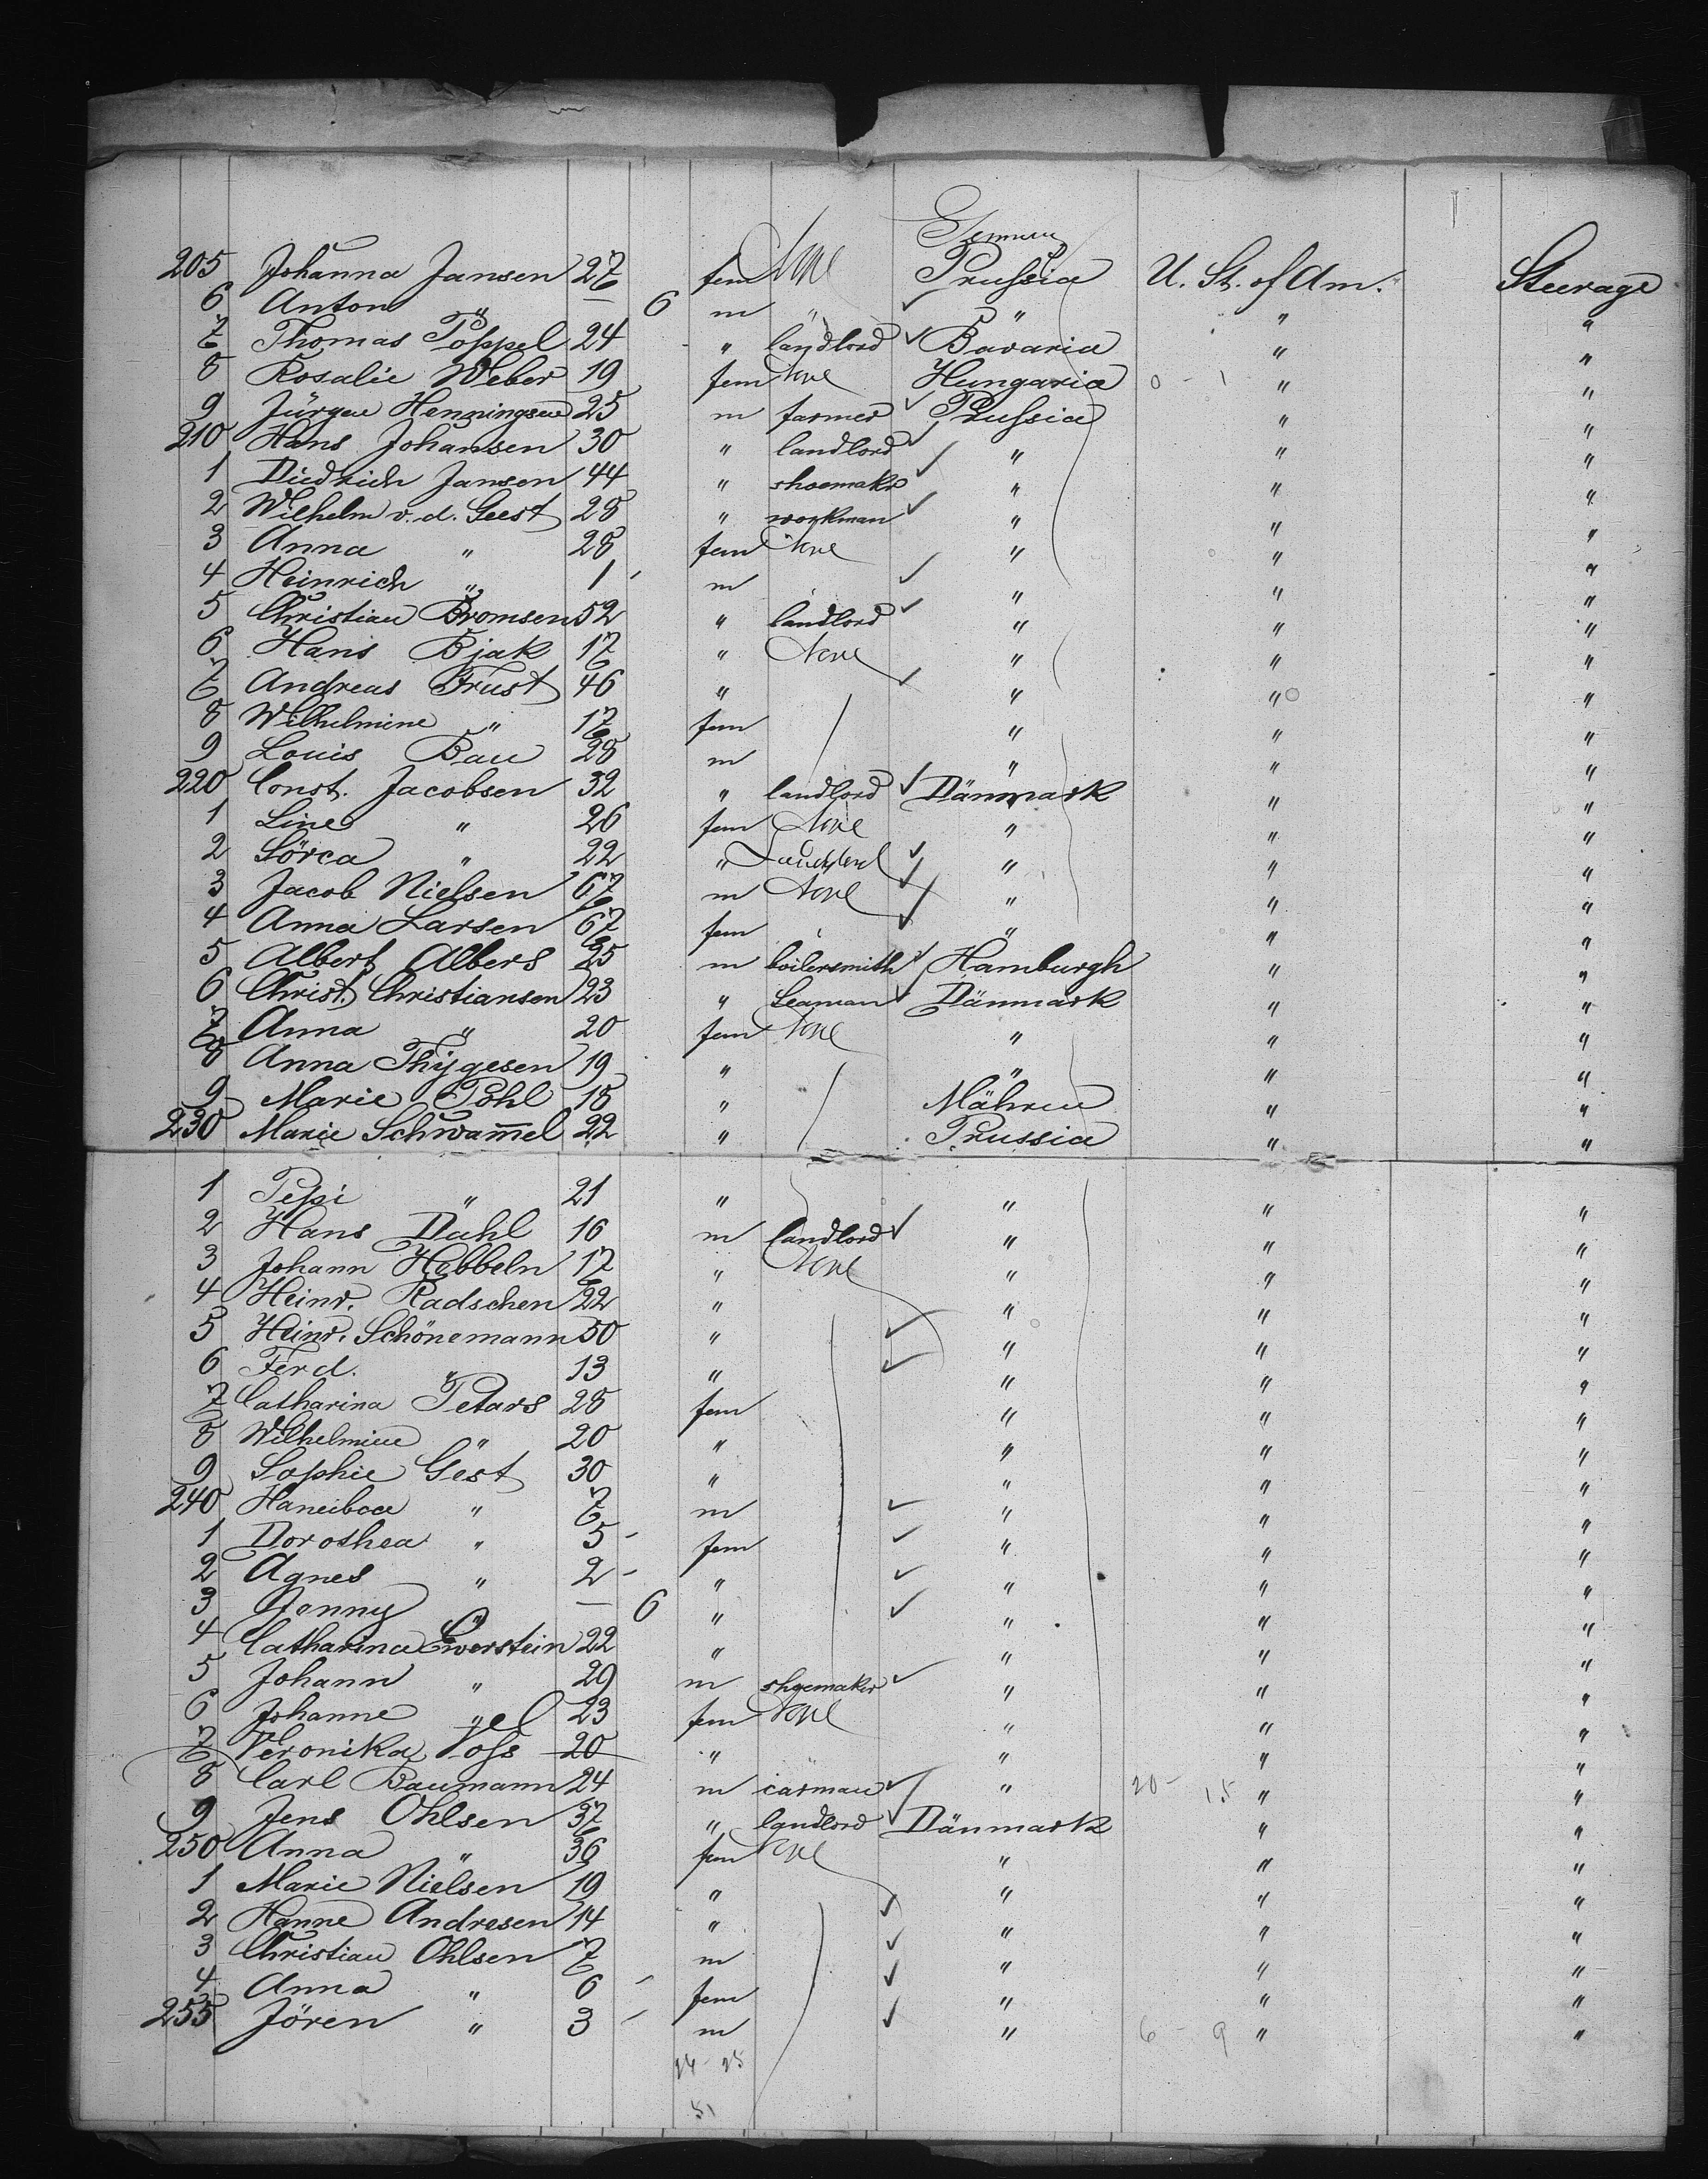 Germany
205 Johanna Jansen 27 fem None Prussia U. St. of Am. Steerage
6 Anton " — 6 m " " " "
7 Thomas Poppel 24 " landlord Bavaria " "
8 Rosalie Weber 19 fem None Hungaria 0 - 1 " "
9 Jürgen Henningsen 25 m farmer Prussia " "
210 Hans Johansen 30 " landlord " " "
1 Diedrich Jansen 44 " shoemaker " " "
2 Wilhelm v. d. Geest 28 " workman " " "
3 Anna " 28 fem None " " "
4 Heinrich " 1 m " " "
5 Christian Bromsen 52 " landlord " " "
6 Hans Bjak 17 " None " " "
7 Andreas Trust 46 " " " "
8 Wilhelmine " 17 fem " " "
9 Louis Bau 28 m " " "
220 Const. Jacobsen 32 " landlord Dänmark " "
1 Line " 26 fem None " " "
2 Sörca " 22 " Landlord " " "
3 Jacob Nielsen 67 m None " " "
4 Anna Larsen 67 fem " " "
5 Albert Albers 25 m boilersmith Hamburgh " "
6 Christ. Christiansen 23 " Seaman Dänmark " "
7 Anna " 20 fem None " " "
8 Anna Thygesen 19 " " " "
9 Marie Pohl 18 " Mähren " "
230 Marie Schwam̅el 22 " Prussia " "
1 Pepi " 21 " " " "
2 Hans Dahl 16 m landlord " " "
3 Johann Hebbeln 17 " None " " "
4 Heinr. Radschen 22 " " " "
5 Heinr. Schönemann 50 " " " "
6 Ferd. " 13 " " " "
7 Catharina Petars 28 fem " " "
8 Wilhelmine " 20 " " " "
9 Sophie Gest 30 " " " "
240 " 7 m " " "
1 Dorothea " 5 fem " " "
2 Agnes " 2 " " " "
3 Jenny " — 6 " " " "
4 Catharina Ewerstein 22 " " " "
5 Johann " 29 m shoemaker " " "
6 Johanne " 23 fem None " " "
7 Veronika Voss 20 " " " "
8 Carl Baumann 24 m carman " 20 - 15 " "
9 Jens Ohlsen 37 " landlord Dänmark " "
250 Anna " 36 fem None " " "
1 Marie Nielsen 19 " " " "
2 Hanne Andresen 14 " " " "
3 Christian Ohlsen 7 m " " "
4 Anna " 6 fem " " "
255 Jören " 3 m " 6 - 9 " "
26 - 25
51